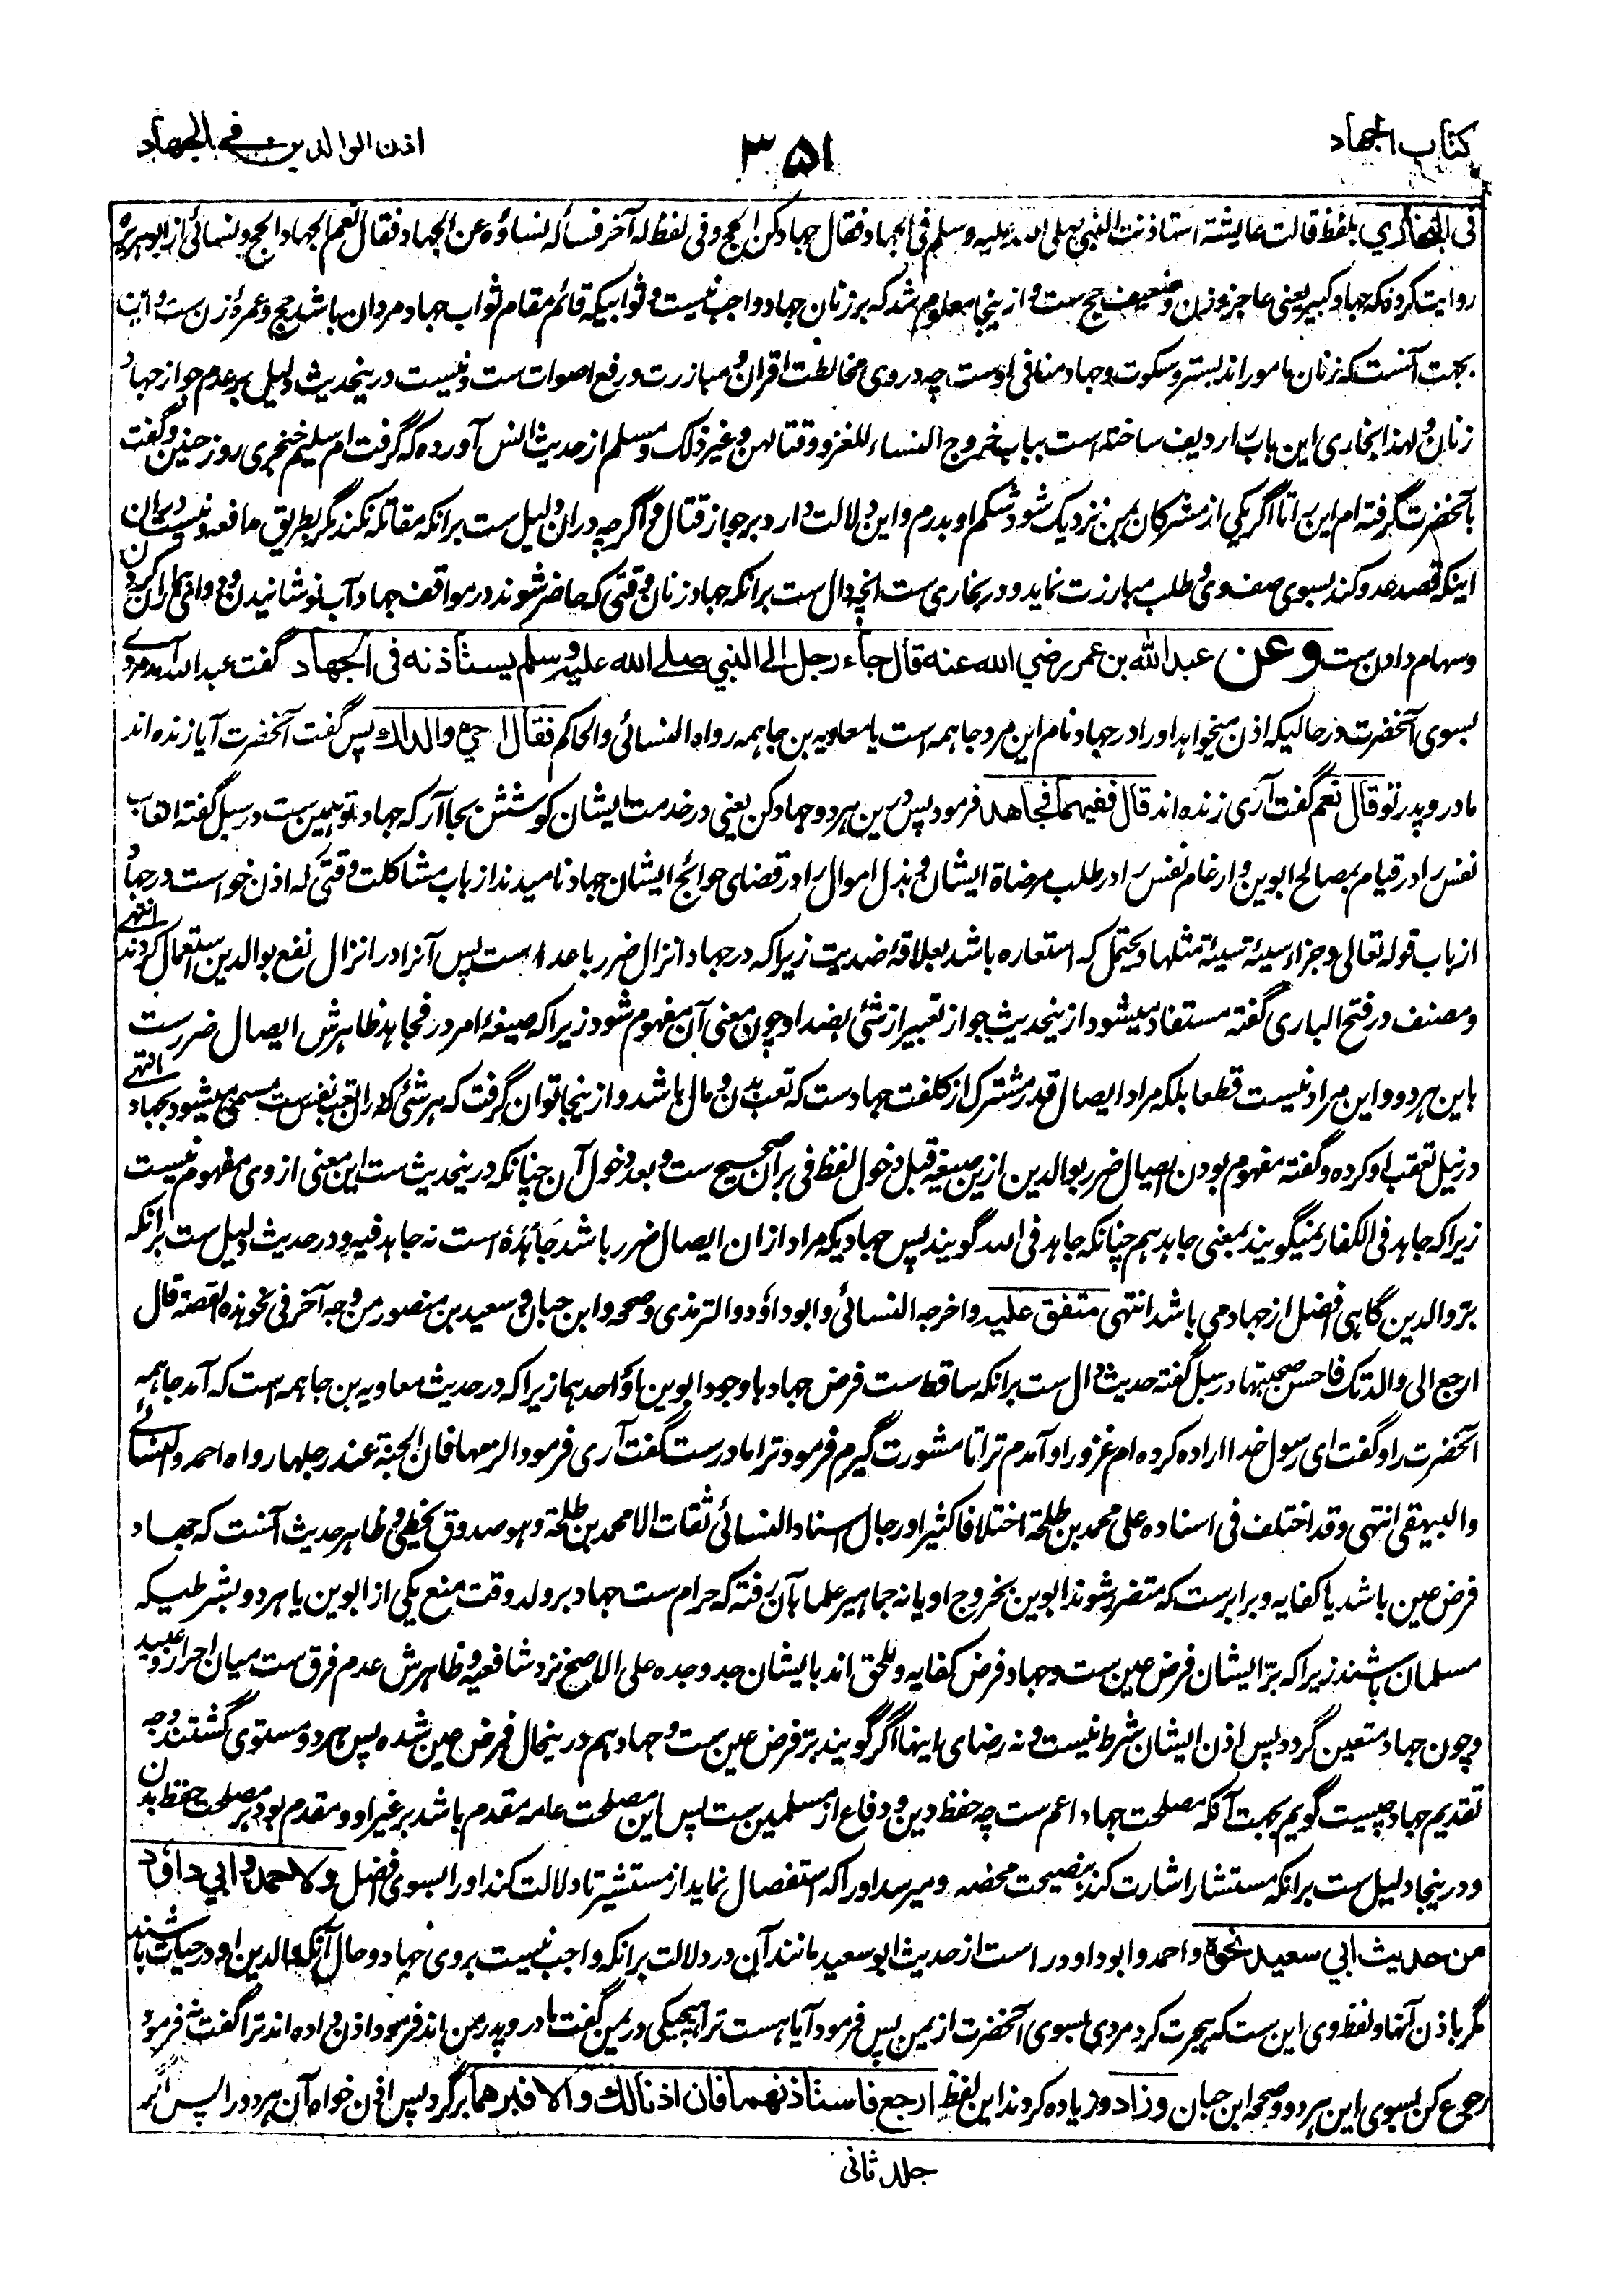 کتاب الجهاد
۳۵۱
اذن الوالدین فی الجهاد
فی البخاری بلفظ قالت عایشة استاذنت النبی صلی الله علیه وسلم فی الجهاد فقال جهادکن الحج وفی لفظ له آخر فسأله نساؤه عن الجهاد فقال نعم الجهاد الحج ونسائی از ابوهریرة
روایت کرده که جهاد کبیر یعنی عاجز وزن وضعیف حج ست و ازینجا معلوم شد که بر زنان جهاد واجب نیست و ثوابیکه قائم مقام ثواب جهاد مردان باشد حج و عمرۀ زن ست و این
بجهت آنست که زنان مامور اند بستر و سکوت و جهاد منافی اوست چه در وی مخالطت اقران و مبارزت و رفع اصوات ست و نیست درینحدیث دلیل بر عدم جواز جهاد
زنان و لهذا بخاری این باب را ردیف ساخته است بباب خروج النساء للغزو وقتالهن وغیر ذلک و مسلم از حدیث انس آورده که گرفت ام سلیم خنجری روز حنین و گفت
بآنحضرت گرفته ام این را تا اگر یکی از مشرکان بمن نزدیک شود شکم او بدرم و این دلالت دارد بر جواز قتال و اگرچه دران دلیل ست برانکه مقاتله نکند مگر بطریق مدافعه و نیست دران
اینکه قصد عدو کند بسوی صف وی و طلب مبارزت نماید و در بخاری ست انچه دال ست برانکه جهاد زنان وقتی که حاضر شوند در مواقف جهاد آب نوشانیدن و دوای بیماران کردن
و سهام دادن ست وعن عبدالله بن عمر رضي الله عنه قال جاء رجل الی النبي صلے الله علیه وسلم یستأذنه فی الجهاد گفت عبدالله آمد مردے
بسوی آنحضرت در حالیکه اذن میخواهد اورا در جهاد نام این مرد جاهمه است یا معاویه بن جاهمه رواه النسائی والحاکم فقال احي والداك پس گفت آنحضرت آیا زنده اند
مادر و پدر تو قال نعم گفت آری زنده اند قال ففیهما فجاهد فرمود پس درین هردو جهاد کن یعنی در خدمت ایشان کوشش بجا آر که جهاد تو همین ست در سبل گفته اتعاب
نفس را در قیام بمصالح ابوین و ارغام نفس را در طلب مرضاة ایشان و بذل اموال را در قضای حوائج ایشان جهاد نامیدند از باب مشاکلت وقتی که اذن خواست در جهاد
از باب قوله تعالی وجزاء سیئة سیئة مثلها ویحتمل که استعاره باشد بعلاقۀ ضدیت زیرا که در جهاد انزال ضرر باعدا ست پس آنرا در انزال نفع بوالدین استعمال کردند انتهے
و مصنف در فتح الباری گفته مستفاد میشود ازینحدیث جواز تعبیر از شئی بضد او چون معنی آن مفهوم شود زیرا که صیغۀ امر در فجاهد ظاهرش ایصال ضررست
باین هردو و این مراد نیست قطعا بلکه مراد ایصال قدر مشترک از کلفت جهاد ست که تعب بدن و مال باشد و ازینجا توان گرفت که هر شئ که دران تعب نفس ست مسمی میشود بجهاد انتهے
در نیل تعقب او کرده و گفته مفهوم بودن ایصال ضرر بوالدین ازین صیغه قبل دخول لفظ فی بران صحیح ست و بعد دخول آن چنانکه درینحدیث ست این معنی از وی مفهوم نیست
زیرا که جاهد فی الکفار نمیگویند بمعنی جاهدهم چنانکه جاهد فی الله گویند پس جهادیکه مراد ازان ایصال ضرر باشد جاهده است نه جاهد فیه و در حدیث دلیل ست برانکه
بر والدین گاهی افضل از جهاد می باشد انتهی متفق علیه واخرجه النسائی وابو داؤد والترمذی وصححه وابن حبان وسعید بن منصور من وجه آخر فی نحو هذه القصة قال
ارجع الی والدتک فاحسن صحبتها در سبل گفته حدیث دال ست برانکه ساقط ست فرض جهاد با وجود ابوین او احدهما زیرا که در حدیث معاویه بن جاهمه است که آمد جاهمه
آنحضرت را و گفت ای رسول خدا اراده کرده ام غزو را و آمدم ترا تا مشورت گیرم فرمود ترا مادر ست گفت آری فرمود الزمها فان الجنة عند رجلها رواه احمد والنسائے
والبیهقی انتهی وقد اختلف فی اسناده علی محمد بن طلحة اختلافا کثیرا ورجال اسناد النسائی ثقات الا محمد بن طلحة وهو صدوق یخطی و ظاهر حدیث آنست که جهاد
فرض عین باشد یا کفایه و برابرست که متضرر شوند ابوین بخروج او یا نه جماهیر علما بآن رفته که حرام ست جهاد بر ولد وقت منع یکی از ابوین یا هردو بشرطیکه
مسلمان باشند زیرا که بر ایشان فرض عین ست و جهاد فرض کفایه و ملحق اند بایشان جد و جده علی الاصح نزد شافعیه و ظاهرش عدم فرق ست میان احرار و عبید
و چون جهاد متعین گردد پس اذن ایشان شرط نیست و نه رضای اینها اگر گویند بر فرض عین ست و جهاد هم درینحال فرض عین شده پس هردو مستوی گشتند وجه
تقدیم جهاد چیست گویم بجهت آنکه مصلحت جهاد اعم ست چه حفظ دین و دفاع از مسلمین ست پس این مصلحت عامه مقدم باشد بر غیر او و مقدم بود بر مصلحت حفظ بدن
و درینجا دلیل ست برانکه مستشار اشارت کند بنصیحت محضه و میرسد اورا که استفصال نماید از مستشیر تا دلالت کند اورا بسوی افضل ولاحمد وابي داؤد
من حدیث ابي سعید نحوه و احمد و ابو داوود راست از حدیث ابوسعید مانند آن در دلالت برانکه واجب نیست بروی جهاد و حال آنکه والدین او در حیات باشند
مگر باذن آنها و لفظ وی این ست که هجرت کرد مردی بسوی آنحضرت از یمن پس فرمود آیا هست ترا هیچیکی در یمن گفت مادر و پدر من اند فرمود اذن داده اند ترا گفت نه فرمود
رجوع کن بسوی این هردو وصححه ابن حبان وزاد و زیاده کردند این لفظ ارجع فاستأذنهما فان اذنا لك والا فبرهما برگرد پس اذن خواه آن هردو را پس اگر
جلد ثانی